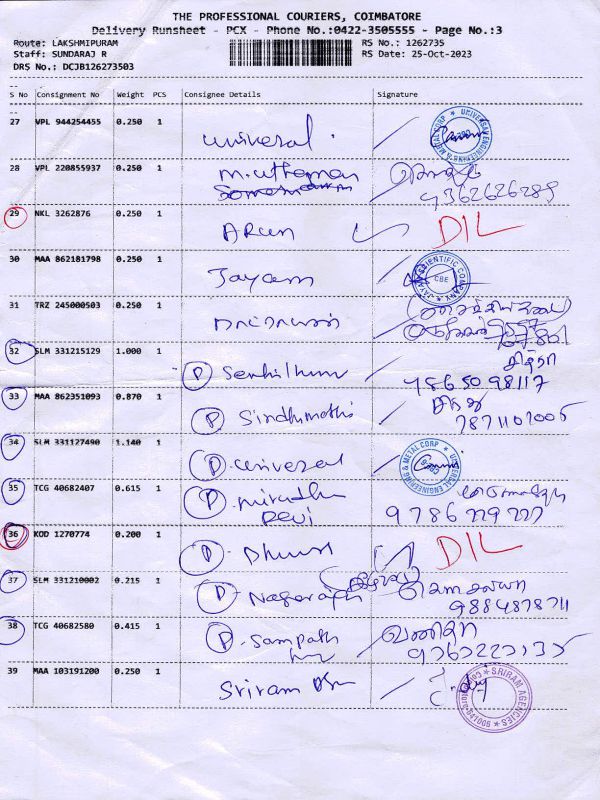 THE PROFESSIONAL COURIERS, COIMBATORE
Delivery Runsheet - PCX - Phone No.:0422-3505555 - Page No.:3
Route: LAKSHMIPURAM RS No.: 1262735
Staff: SUNDARAJ R RS Date: 25-Oct-2023
DRS No.: DCJB126273503
S No Consignment No Weight PCS Consignee Details Signature
27 VPL 944254455 0.250 1 universal
UNIVERSAL ENGINEERING & METAL CORP
28 VPL 220855937 0.250 1
9362626289
29 NKL 3262876 0.250 1 Arun DIL
30 MAA 862181798 0.250 1 Jayam
JAYAM SCIENTIFIC COMPANY CBE
31 TRZ 245000503 0.250 1
32 SLM 331215129 1.000 1 P Senthilkumar
சித்ரா
9865098117
33 MAA 862351093 0.870 1 P Sindhumathi
7871101005
34 SLM 331127490 1.140 1 P. universal
UNIVERSAL ENGINEERING & METAL CORP
35 TCG 40682407 0.615 1 P. mirudhu
Devi 9786229227
36 KOD 1270774 0.200 1 P. DIL
37 SLM 331210002 0.215 1 P. Nagarajan
9884878711
38 TCG 40682580 0.415 1 P. Sampath
39 MAA 103191200 0.250 1 Sriram
SRIRAM AGENCIES